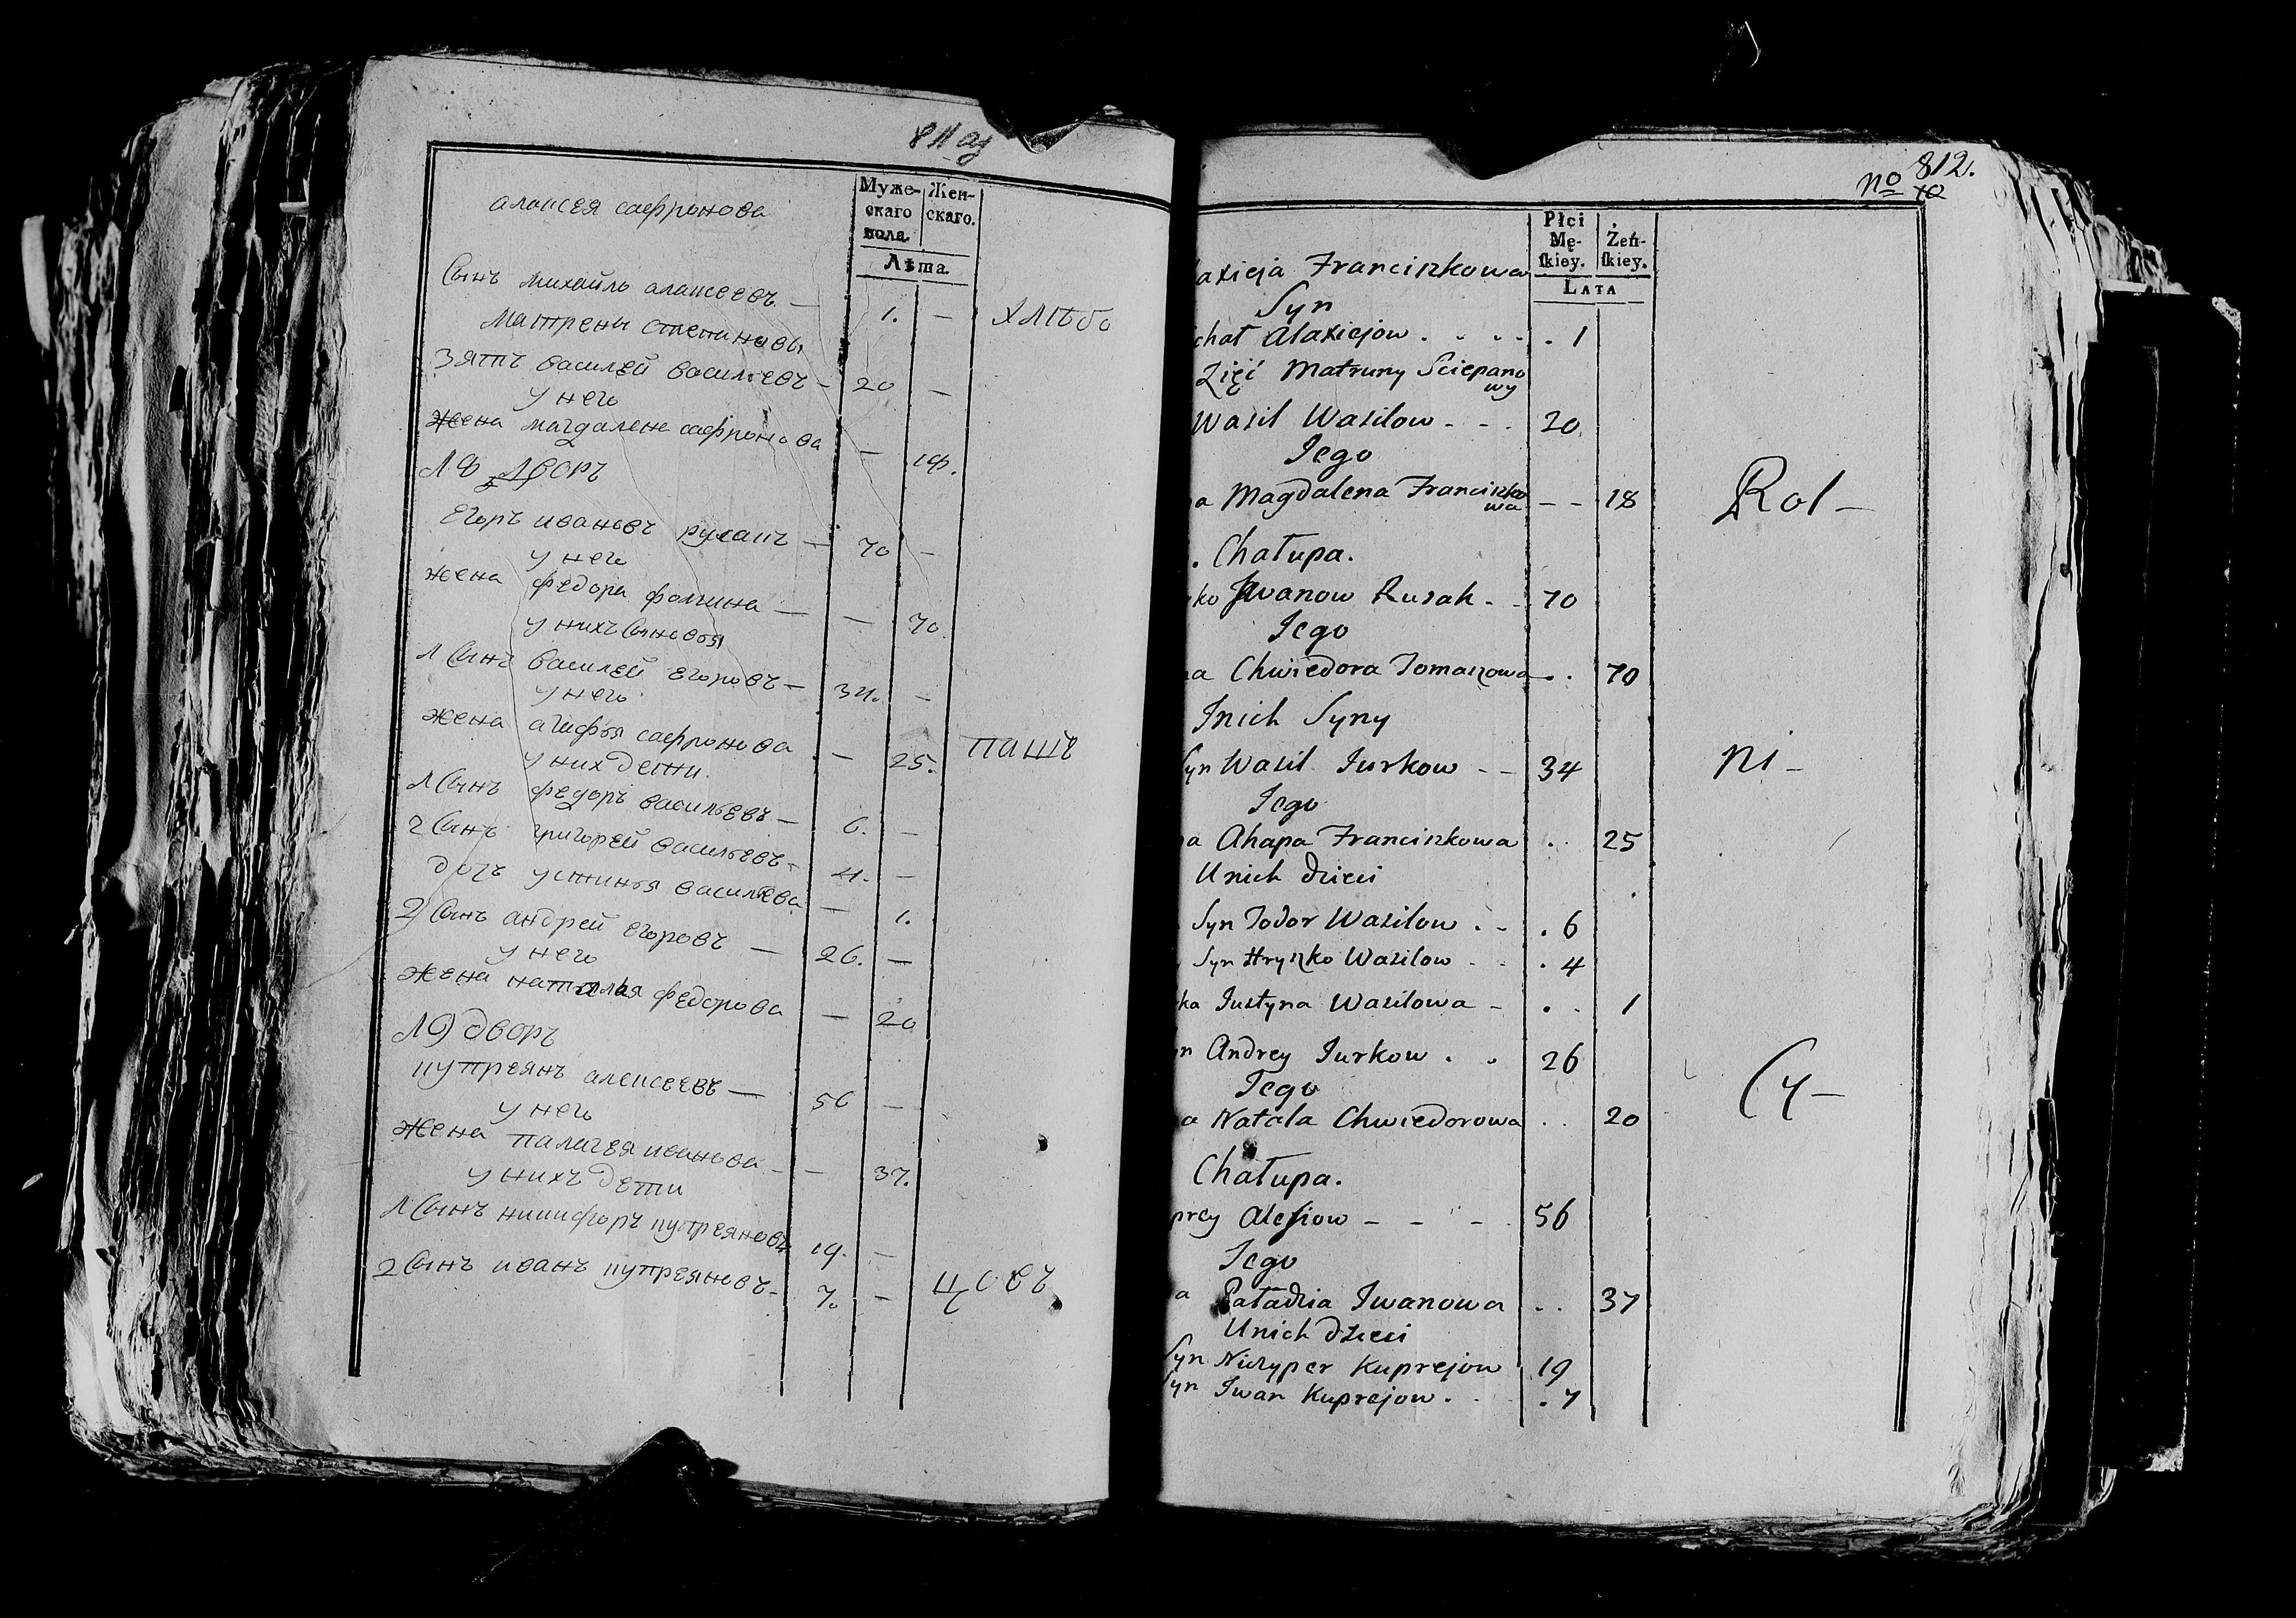 811 об
Муже-
скаго
пола.
Жен-
скаго.
Лѣта.
алексея сафронова
Сынъ михайло алексеевъ — 1. —
матрены степановы
зять василей васильевъ — 20 —
у него
жена магдалене сафронова — 18.
18 дворъ
Егоръ ивановъ русакъ — 70 —
у него
жена федора фомина — — 70
у нихъ сыновья
1 Сынъ василей егоровъ — 34. —
у него
жена агафья сафронова — 25.
у них дети.
1 Сынъ федоръ васильевъ — 6. —
2 Сынъ григорей васильевъ — 4. —
дочь устинья васильева — 1.
2 Сынъ андрей егоровъ — 26. —
у него
жена наталья федорова — 20
19 дворъ
купреянъ алексеевъ — 56 —
у него
жена палагея иванова — — 37.
у нихъ дети
1 Сынъ никифоръ купреяновъ 19. —
2 Сынъ иванъ купреяновъ — 7. —
хлебо
паш
цовъ
812.
no
Płci
Mę-
ſkiey.
Żeń-
ſkiey.
LATA
axieja Franciszkowa
Syn
chał Alaxiejow . . . . . 1
Zięć Matruny Sciepano
wy
Wasil Wasilow - - . 20
Jego
a Magdalena Franciszko
wa - - 18
. Chałupa.
ko Jwanow Rusak - . 70
Jego
na Chwiedora Tomaszowa . . 70
Jnich Syny
Syn Wasil Jurkow - - 34
Jego
na Ahapa Franciszkowa . . 25
Unich dzieci
Syn Todor Wasilow . - . 6
Syn Hryszko Wasilow - - . 4
ka Justyna Wasilowa - . . 1
n Andrey Jurkow . . 26
Jego
a Natala Chwiedorowa . . 20
Chałupa.
prey Alesiow - - - 56
Jego
a Paładzia Jwanowa . . 37
Unich dzieci
Syn Niczyper Kuprejow 19
Syn Jwan Kuprejow . . . 7
Rol -
ni -
Cy -